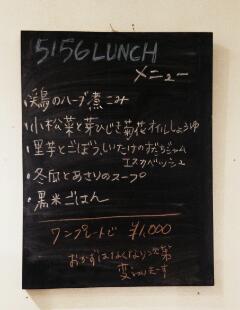 5156 LUNCH
メニュー
・鶏のハーブ煮こみ
・小松菜と芽ひじき菊花オイルしょうゆ
・里芋とごぼう、しいたけの
エスカベッシュ
・冬瓜とあさりのスープ
・黒米ごはん
ワンプレートで ¥1,000
おかずはなくなり次第
変わります